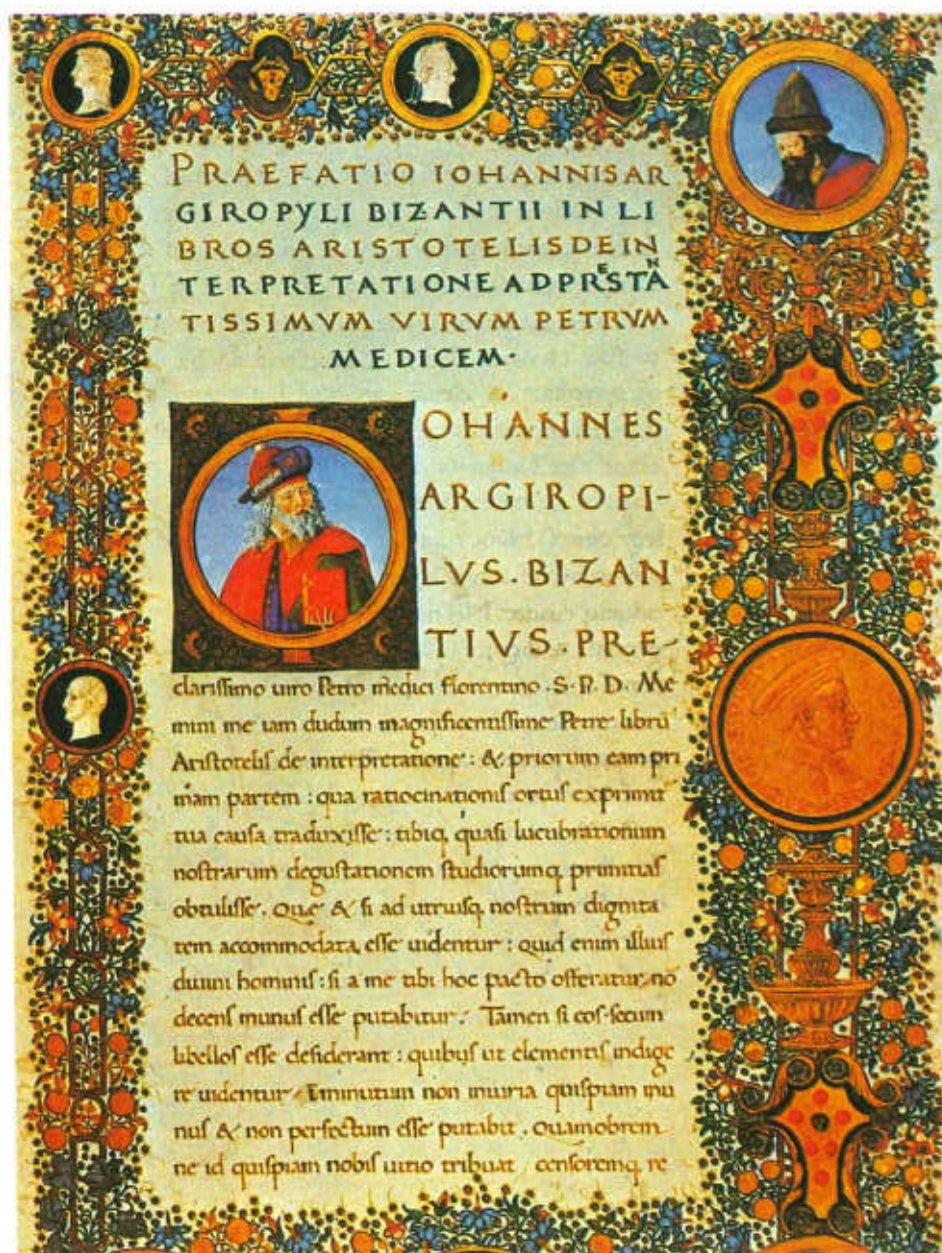 PRAEFATIO IOHANNIS AR
GIROPYLI BIZANTII IN LI
BROS ARISTOTELIS DE IN
TERPRETATIONE AD PRESTAN
TISSIMVM VIRVM PETRVM
MEDICEM·
OHANNES
ARGIROPI-
LVS. BIZAN
TIVS. PRE-
clarissimo uiro Petro medici florentino . S. P. D. Me
mini me iam dudum magnificentissime Petre librū
Aristotelis de interpretatione : & priorum eam pri
mam partem : qua ratiocinationis ortus exprimit
tua causa traduxisse : tibiq, quasi lucubrationum
nostrarum degustationem studiorumq, primitias
obtulisse. Que & si ad utriusq, nostrum dignita
tem accommodata esse uidentur : quid enim illius
diuini hominis : si a me tibi hoc pacto offeratur, nō
decens munus esse putabitur. Tamen si eos-secum
libellos esse desiderant : quibus ut elementis indige
re uidentur. Eminutum non iniuria quispiam mu
nus & non perfectum esse putabit . Quamobrem
ne id quispiam nobis uitio tribuat censoremq, re